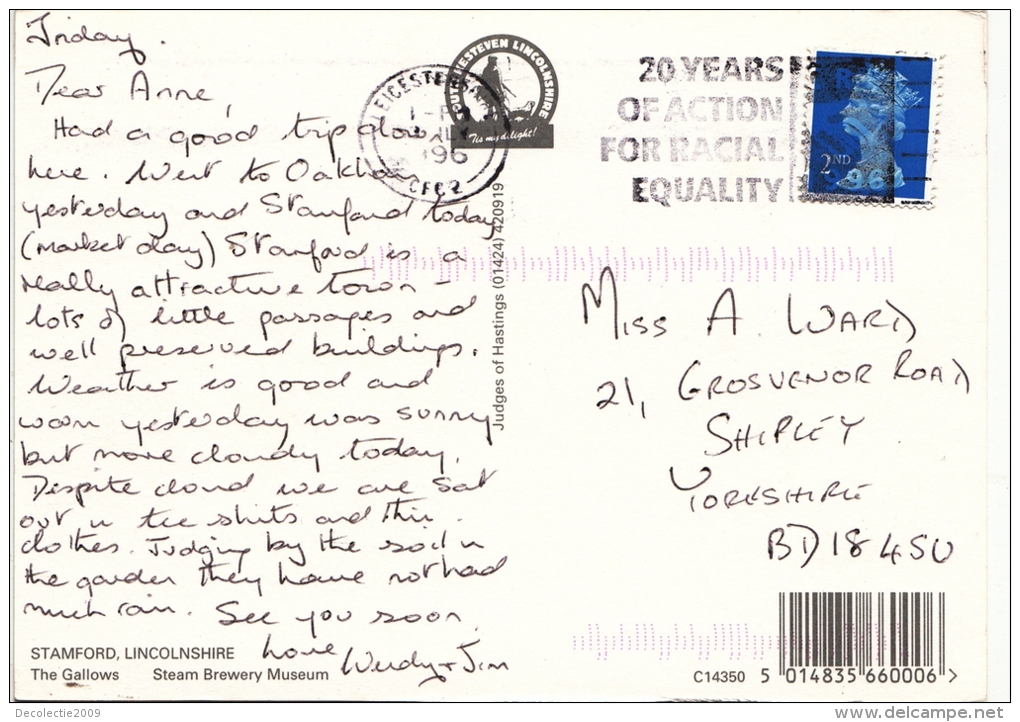 Friday.
Dear Anne,
Had a good trip down
here. Went to Oakham
yesterday and Stamford today
(market day) Stamford is a
really attractive town -
lots of little passages and
well preserved buildings.
Weather is good and
warm yesterday was sunny
but more cloudy today.
Despite cloud we are sat
out in tee shirts and thin
clothes. Judging by the soil in
the garden they have not had
much rain. See you soon.
love Wendy + Jim
STAMFORD, LINCOLNSHIRE
The Gallows Steam Brewery Museum
LEICESTERSHIRE
1996
SOUTH KESTEVEN LINCOLNSHIRE
'Tis my delight!
Judges of Hastings (01424) 420919
20 YEARS
OF ACTION
FOR RACIAL
EQUALITY
2ND
MISS A. WARD
21, GROSVENOR ROAD
SHIPLEY
YORKSHIRE
BD18 4SU
C14350 5 014835 660006 >
Decolectie2009
www.delcampe.net